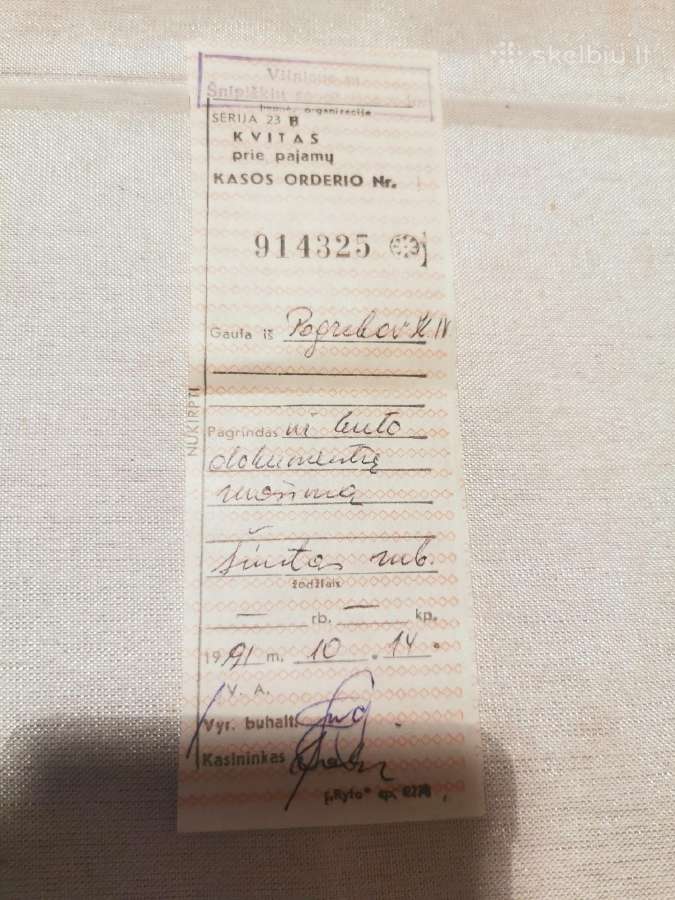 skelbiu.lt
Vilniaus m.
Šnipiškių
įmonė, organizacija
SERIJA 23 B
KVITAS
prie pajamų
KASOS ORDERIO Nr.
914325
Gauta iš
NUKIRPTI
Pagrindas už buto
dokumentų
ruošimą
šimtas rub.
žodžiais
— rb. — kp.
1991 m. 10 . 14.
V. A.
Vyr. buhalt.
Kasininkas
„Ryto" sp.